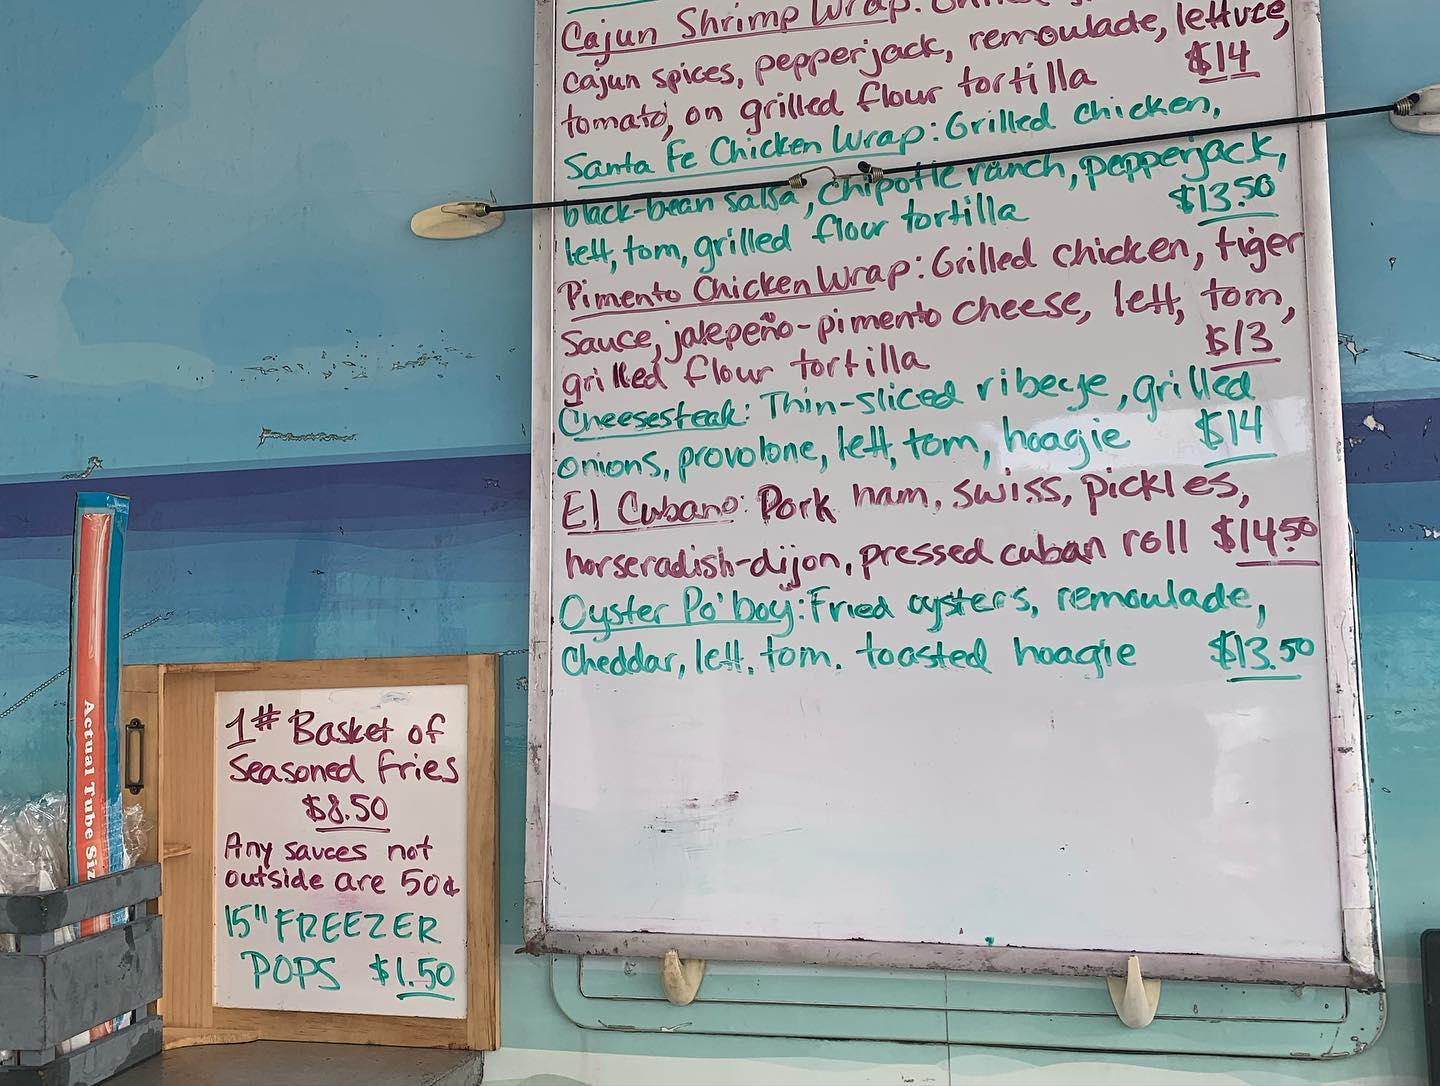 Cajun Shrimp Wrap:
cajun spices, pepperjack, remoulade, lettuce,
tomato, on grilled flour tortilla $14
Santa Fe Chicken Wrap: Grilled chicken,
black-bean salsa, chipotle ranch, pepperjack,
lett, tom, grilled flour tortilla $13.50
Pimento Chicken Wrap: Grilled chicken, tiger
sauce, jalepeño-pimento cheese, lett, tom,
grilled flour tortilla $13
Cheesesteak: Thin-sliced ribeye, grilled
onions, provolone, lett, tom, hoagie $14
El Cubano: Pork ham, swiss, pickles,
horseradish-dijon, pressed cuban roll $14.50
Oyster Po'boy: Fried oysters, remoulade,
cheddar, lett, tom, toasted hoagie $13.50
1# Basket of
Seasoned Fries
$8.50
Any sauces not
outside are 50¢
15" FREEZER
POPS $1.50
Actual Tube Siz